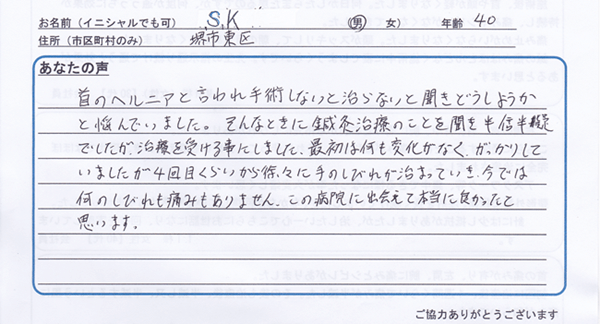 お名前（イニシャルでも可） S.K. 男 女） 年齢 40
住所（市区町村のみ） 堺市東区
あなたの声
首のヘルニアと言われ手術しないと治らないと聞きどうしようか
と悩んでいました。そんなときに鍼灸治療のことを聞き半信半疑
でしたが治療を受ける事にしました。最初は何も変化がなく、がっかりして
いましたが4回目くらいから徐々に手のしびれが治まっていき、今では
何のしびれも痛みもありません。この病院に出会えて本当に良かったと
思います。
ご協力ありがとうございます